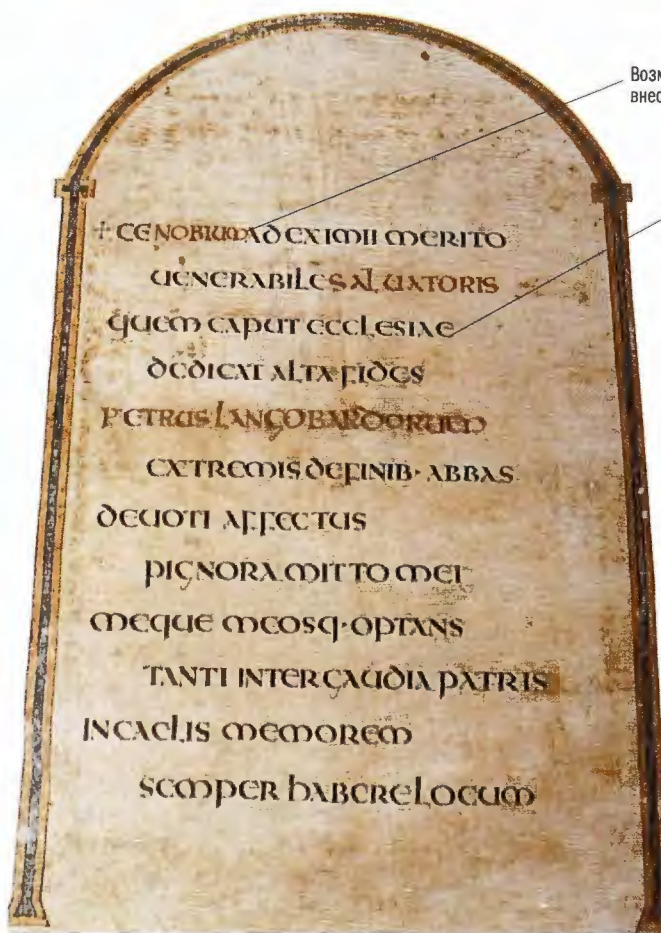 Возм
внес
+ CENOBIUM AD EXIMII MERITO
UENERABILE SALUATORIS
QUEM CAPUT ECCLESIAE
DEDICAT ALTA FIDES
PETRUS LANGOBARDORUM
EXTREMIS DE FINIB· ABBAS
DEUOTI AFFECTUS
PIGNORA MITTO MEI
MEQUE MEOSQ· OPTANS
TANTI INTER GAUDIA PATRIS
IN CAELIS MEMOREM
SEMPER HABERE LOCUM